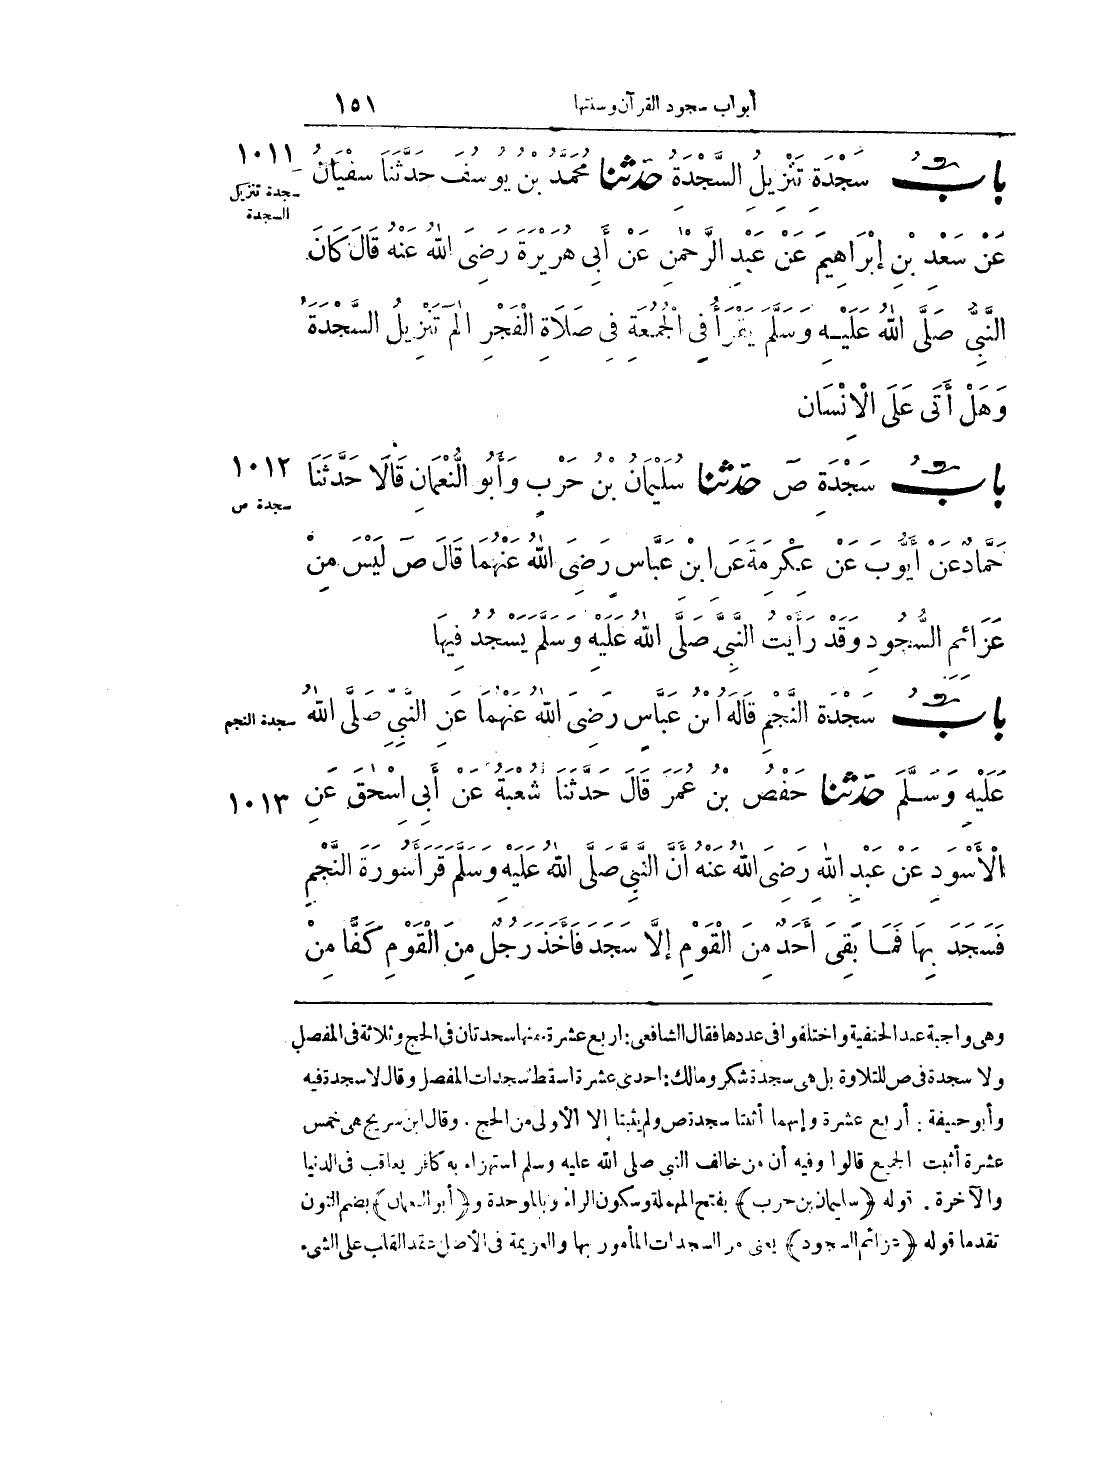 أبواب سجود القرآن وسنتها ١٥١
بَابُ سَجْدَةِ تَنْزِيلُ السَّجْدَةُ حَدَّثَنَا مُحَمَّدُ بْنُ يُوسُفَ حَدَّثَنَا سُفْيَانُ
١٠١١
سجدة تنزيل
السجدة
عَنْ سَعْدِ بْنِ إِبْرَاهِيمَ عَنْ عَبْدِ الرَّحْمٰنِ عَنْ أَبِي هُرَيْرَةَ رَضِيَ اللهُ عَنْهُ قَالَ كَانَ
النَّبِيُّ صَلَّى اللهُ عَلَيْهِ وَسَلَّمَ يَقْرَأُ فِي الْجُمُعَةِ فِي صَلَاةِ الْفَجْرِ الٓمٓ تَنْزِيلُ السَّجْدَةُ
وَهَلْ أَتَى عَلَى الْإِنْسَانِ
بَابُ سَجْدَةِ صٓ حَدَّثَنَا سُلَيْمَانُ بْنُ حَرْبٍ وَأَبُو النُّعْمَانِ قَالَا حَدَّثَنَا
١٠١٢
سجدة ص
حَمَّادٌ عَنْ أَيُّوبَ عَنْ عِكْرِمَةَ عَنِ ابْنِ عَبَّاسٍ رَضِيَ اللهُ عَنْهُمَا قَالَ صٓ لَيْسَ مِنْ
عَزَائِمِ السُّجُودِ وَقَدْ رَأَيْتُ النَّبِيَّ صَلَّى اللهُ عَلَيْهِ وَسَلَّمَ يَسْجُدُ فِيهَا
بَابُ سَجْدَةِ النَّجْمِ قَالَهُ ابْنُ عَبَّاسٍ رَضِيَ اللهُ عَنْهُمَا عَنِ النَّبِيِّ صَلَّى اللهُ
سجدة النجم
عَلَيْهِ وَسَلَّمَ حَدَّثَنَا حَفْصُ بْنُ عُمَرَ قَالَ حَدَّثَنَا شُعْبَةُ عَنْ أَبِي إِسْحٰقَ عَنِ
١٠١٣
الْأَسْوَدِ عَنْ عَبْدِ اللهِ رَضِيَ اللهُ عَنْهُ أَنَّ النَّبِيَّ صَلَّى اللهُ عَلَيْهِ وَسَلَّمَ قَرَأَ سُورَةَ النَّجْمِ
فَسَجَدَ بِهَا فَمَا بَقِيَ أَحَدٌ مِنَ الْقَوْمِ إِلَّا سَجَدَ فَأَخَذَ رَجُلٌ مِنَ الْقَوْمِ كَفًّا مِنْ
وهى واجبة عند الحنفية واختلفوا فى عددها فقال الشافعى: اربع عشرة. منها سجدتان فى الحج وثلاثة فى المفصل
ولا سجدة فى ص للتلاوة بل هى سجدة شكر ومالك: احدى عشرة اسقط سجدات المفصل وقال لا سجدة فيه
وأبو حنيفة: أربع عشرة وإنهما أثبتا سجدة ص ولم يثبتا إلا الأولى من الحج. وقال ابن سريج هى خمس
عشرة أثبت الجميع قالوا وفيه أن من خالف النبى صلى الله عليه وسلم استهزاء به كافر يعاقب فى الدنيا
والآخرة. قوله ﴿سليمان بن حرب﴾ بفتح المهملة وسكون الراء وبالموحدة و﴿أبو النعمان﴾ بضم النون
تقدما قوله ﴿عزائم السجود﴾ يعنى من السجدات المأمور بها والعزيمة فى الأصل عقد القلب على الشىء